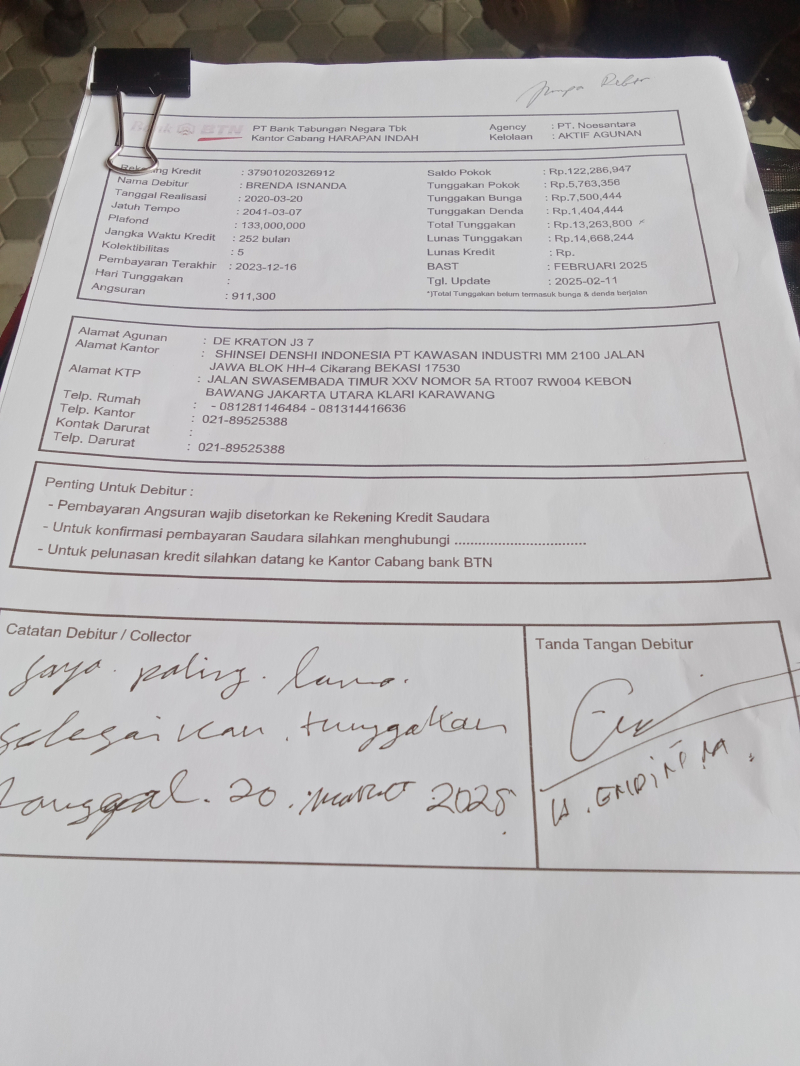 Jumpa Debor
Bank BTN
PT Bank Tabungan Negara Tbk
Kantor Cabang HARAPAN INDAH
Agency : PT. Noesantara
Kelolaan : AKTIF AGUNAN
Rekening Kredit : 37901020326912
Nama Debitur : BRENDA ISNANDA
Tanggal Realisasi : 2020-03-20
Jatuh Tempo : 2041-03-07
Plafond : 133,000,000
Jangka Waktu Kredit : 252 bulan
Kolektibilitas : 5
Pembayaran Terakhir : 2023-12-16
Hari Tunggakan :
Angsuran : 911,300
Saldo Pokok : Rp.122,286,947
Tunggakan Pokok : Rp.5,763,356
Tunggakan Bunga : Rp.7,500,444
Tunggakan Denda : Rp.1,404,444
Total Tunggakan : Rp.13,263,800
Lunas Tunggakan : Rp.14,668,244
Lunas Kredit : Rp.
BAST : FEBRUARI 2025
Tgl. Update : 2025-02-11
*)Total Tunggakan belum termasuk bunga & denda berjalan
Alamat Agunan : DE KRATON J3 7
Alamat Kantor : SHINSEI DENSHI INDONESIA PT KAWASAN INDUSTRI MM 2100 JALAN
JAWA BLOK HH-4 Cikarang BEKASI 17530
Alamat KTP : JALAN SWASEMBADA TIMUR XXV NOMOR 5A RT007 RW004 KEBON
BAWANG JAKARTA UTARA KLARI KARAWANG
Telp. Rumah : - 081281146484 - 081314416636
Telp. Kantor : 021-89525388
Kontak Darurat :
Telp. Darurat : 021-89525388
Penting Untuk Debitur :
- Pembayaran Angsuran wajib disetorkan ke Rekening Kredit Saudara
- Untuk konfirmasi pembayaran Saudara silahkan menghubungi .................................
- Untuk pelunasan kredit silahkan datang ke Kantor Cabang bank BTN
Catatan Debitur / Collector
saya. paling. lama.
selesaikan. tunggakan
tanggal. 20. maret 2025.
Tanda Tangan Debitur